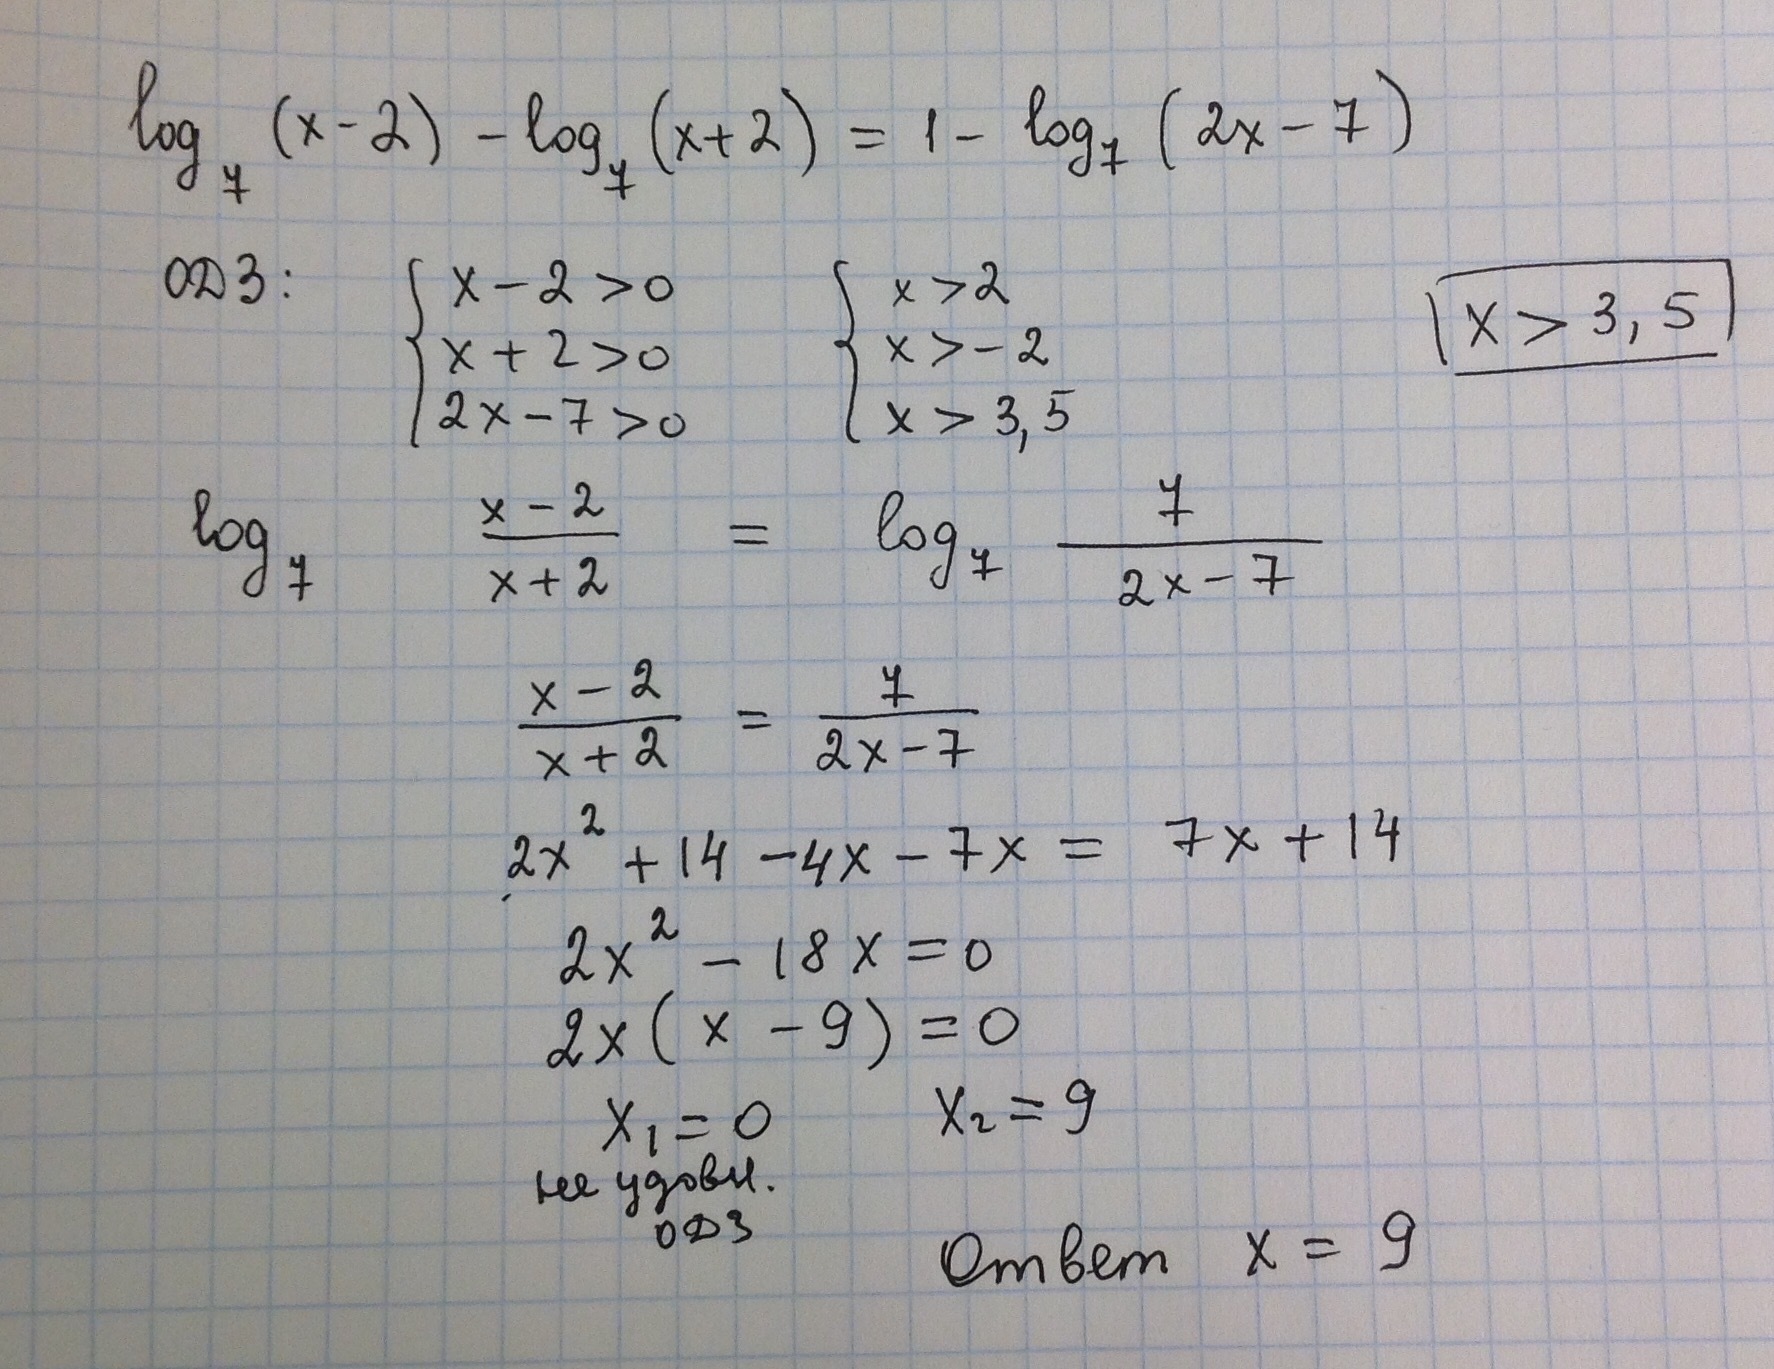 log₇ (x-2) - log₇ (x+2) = 1 - log₇ (2x-7)
ОДЗ: { x-2>0 { x>2 x>3,5
x+2>0 x>-2
2x-7>0 x>3,5
log₇ (x-2)/(x+2) = log₇ 7/(2x-7)
(x-2)/(x+2) = 7/(2x-7)
2x² + 14 - 4x - 7x = 7x + 14
2x² - 18x = 0
2x(x - 9) = 0
x₁ = 0 x₂ = 9
не удовл.
ОДЗ
Ответ x = 9